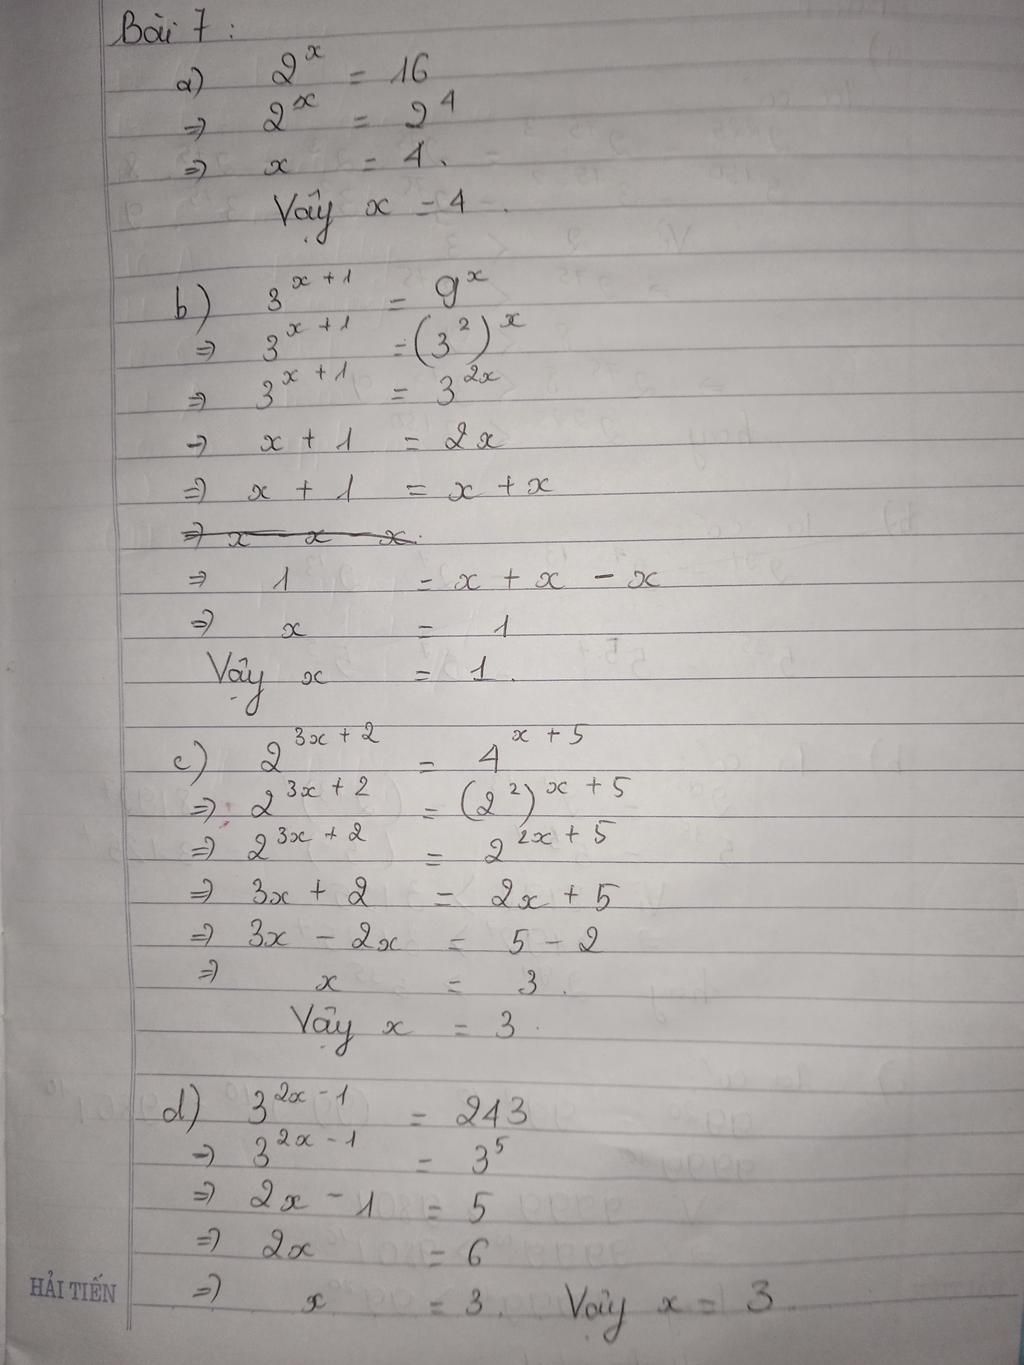 Bài 7 :
a) 2^x = 16
⇒ 2^x = 2^4
⇒ x = 4.
Vậy x = 4.
b) 3^{x+1} = 9^x
⇒ 3^{x+1} = (3^2)^x
⇒ 3^{x+1} = 3^{2x}
⇒ x + 1 = 2x
⇒ x + 1 = x + x
⇒ 1 = x + x - x
⇒ x = 1
Vậy x = 1.
c) 2^{3x+2} = 4^{x+5}
⇒ 2^{3x+2} = (2^2)^{x+5}
⇒ 2^{3x+2} = 2^{2x+5}
⇒ 3x + 2 = 2x + 5
⇒ 3x - 2x = 5 - 2
⇒ x = 3.
Vậy x = 3.
d) 3^{2x-1} = 243
⇒ 3^{2x-1} = 3^5
⇒ 2x - 1 = 5
⇒ 2x = 6
⇒ x = 3. Vậy x = 3.
HẢI TIẾN